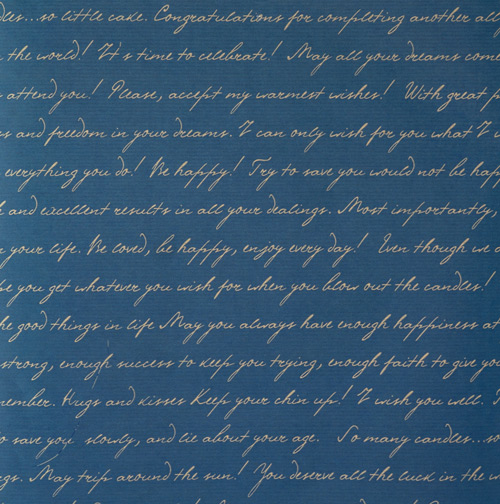 les...so little cake. Congratulations for completing another
the world! It's time to celebrate! May all your dreams come
attend you! Please, accept my warmest wishes! With great
and freedom in your dreams. I can only wish for you what I
everything you do! Be happy! Try to save you would not be hap
and excellent results in all your dealings. Most importantly,
your life. Be loved, be happy, enjoy every day! Even though we
you get whatever you wish for when you blow out the candles!
he good things in life May you always have enough happiness at
strong, enough success to keep you trying, enough faith to give you
member. Hugs and kisses Keep your chin up! I wish you well.
to save you slowly, and lie about your age. So many candles...so
gs. May trip around the sun! You deserve all the luck in the